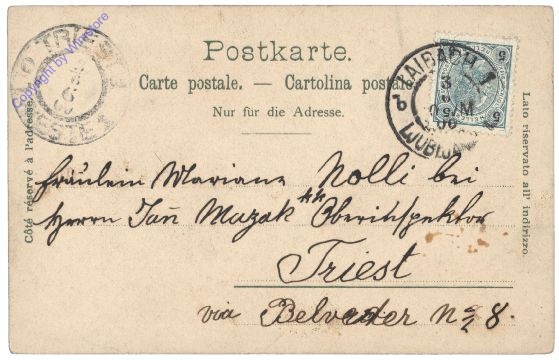 Postkarte.
Carte postale. — Cartolina postale
Nur für die Adresse.
Côté réservé à l'adresse.
Lato riservato all' indirizzo.
TRIESTE
LAIBACH 1
LJUBLJANA
5
5
Copyright by WinStore
Fräulein Mariane Nolli bei
Herrn Jan Mazak Oberinspektor
Triest
via Belveder No 8.